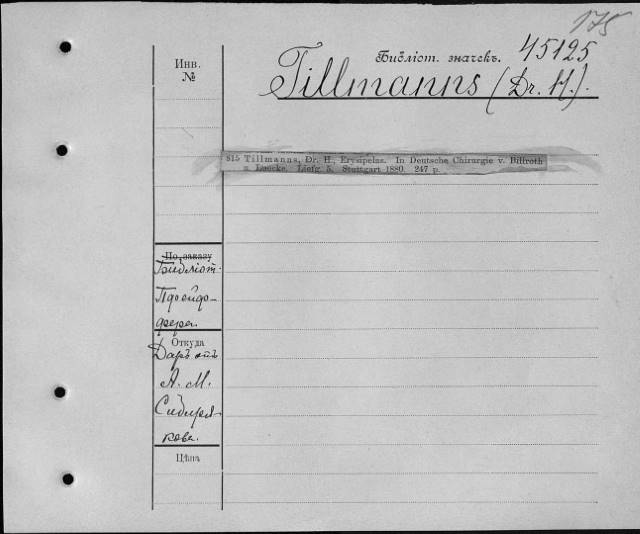 175
Библіот. значекъ. 45125
Инв.
№
Tillmanns (Dr. H.).
815 Tillmanns, Dr. H., Erysipelas. In Deutsche Chirurgie v. Billroth
u. Luecke. Liefg. 5. Stuttgart 1880. 247 p.
По заказу
Библіот.
Пфейф-
фера.
Откуда
Даръ отъ
А. М.
Сибиря-
кова.
Цѣна